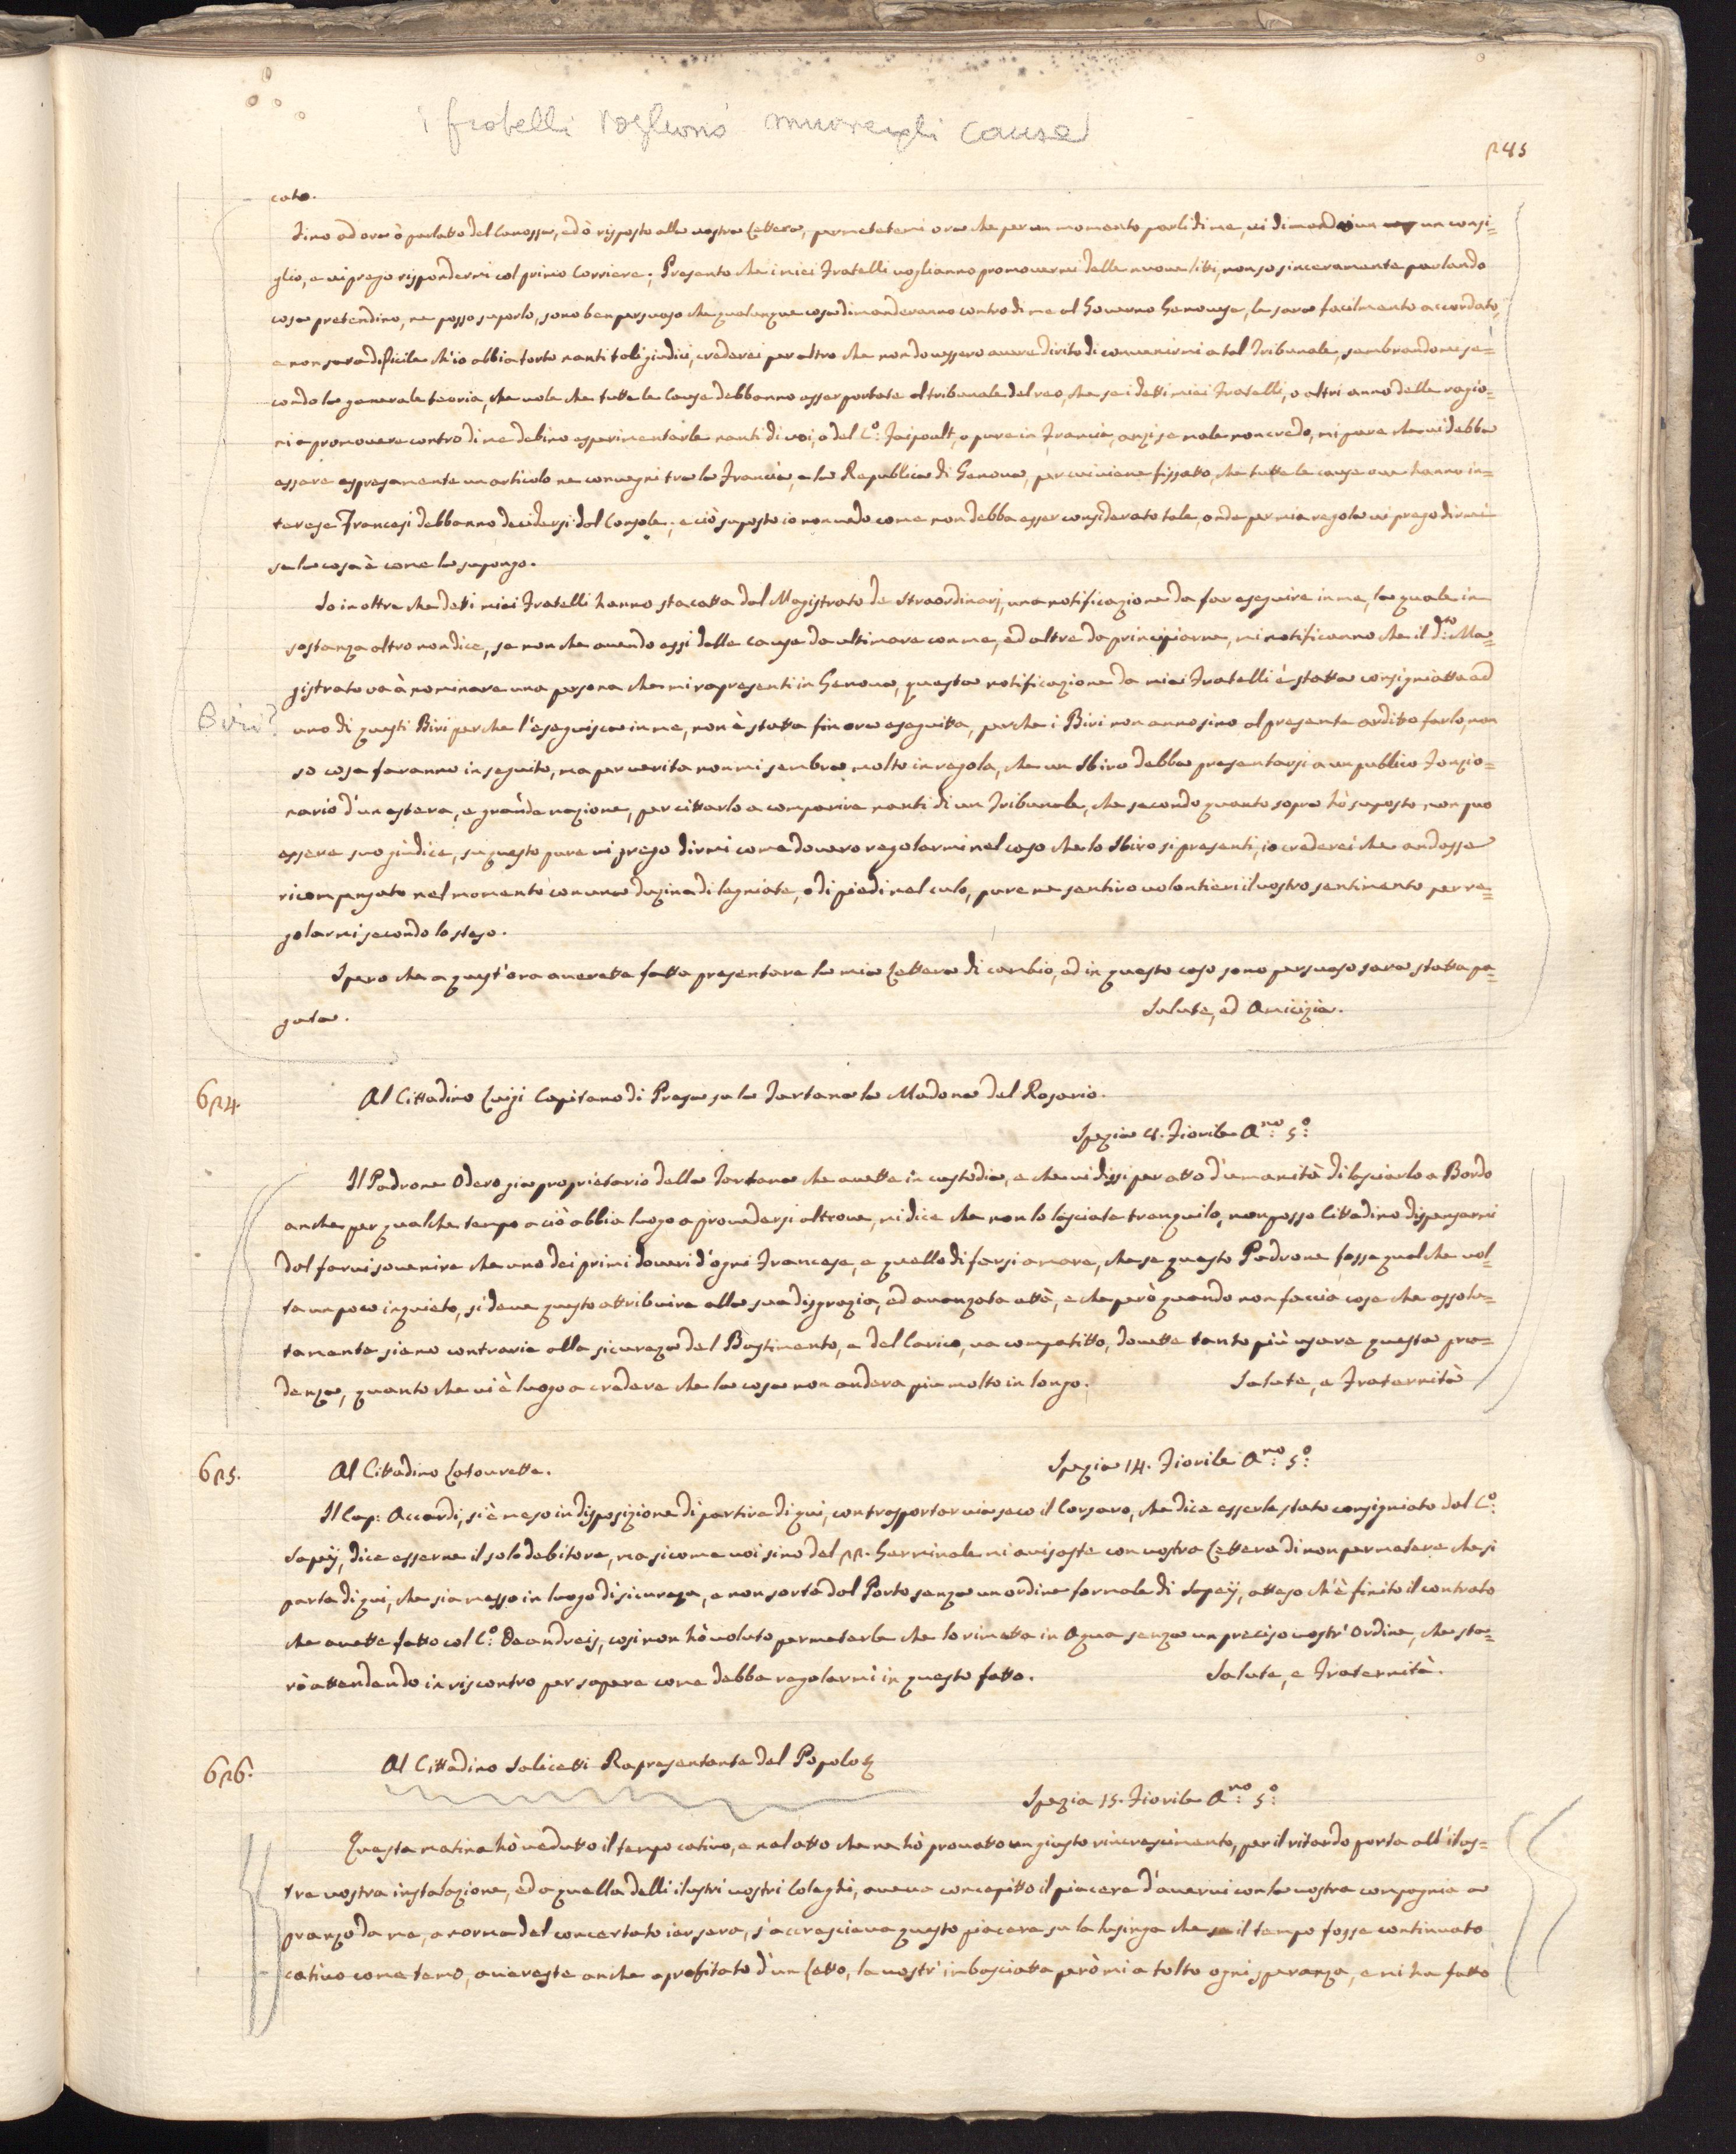 i fratelli vogliono muovergli cause
245
cato.
Sino ad ora ò parlatto del Canossa, ed ò rispposto alla vostra Lettera, permetetemi ora che per un momento parli di me, vi dimando un consi=
glio, e vi prego rispondermi col primo Corriere; Presento che i miei Fratelli voglianno promovermi delle nuove litti, non so sinceramente parlando
cosa pretendino, ne posso suporlo, sono ben persuaso che qualunque cosa dimanderanno contro di me al Governo Genovese, le sara facilmente accordato,
e non sara dificile ch'io abbia torto nanti tali giudici, crederei per altro che non dovessero avere dirito di convenirmi a tal Tribunale sembrandomi se=
condo la generale teoria, che vole che tutte le Cause debbanno esser portate al tribunale del reo, che se i detti miei Fratelli, o altri anno delle ragio=
ni a promovere contro di me debino esperimentarle nanti di voi, o del C.o: Faipoult, o pure in Francia, anzi se male non credo, mi pare che vi debba
essere espresamente un articolo ne convegni tra la Francia, e la Republica di Genova, per cui viene fissatto, che tutte le cause ove hanno in=
terese Francesi debbanno decidersi dal Console; e ciò suposto io non vedo come non debba esser considerato tale, onde per mia regola vi prego dirmi
se la cosa è come la supongo.
So in oltre che detti miei Fratelli hanno stacatta dal Magistrato de Straordinarj, una notificazione da far eseguire in me, la quale in
sostanza altro non dice, se non che avendo essi delle cause da ultimare con me, ed altre da principiarne, mi notificanno che il d.to: Ma=
gistrato va à nominare una persona che mi rapresenti in Genova, questa notificazione da miei Fratelli è statta consigniatta ad
Biri?
uno di questi Biri perche l'eseguisca in me, non è statta fin ora eseguitta, perche i Biri non anno sino al presente arditto farlo, non
so cosa faranno in seguito, ma per verita non mi sembra molto in regola, che un Sbiro debba presentarsi a un publico Fonzio=
nario d'un estera, e grande nazione, per cittarlo a comparire nanti di un Tribunale, che secondo quanto sopra hò suposto non puo
essere suo giudice, su questo pure vi prego dirmi come dovero regolarmi nel caso che lo Sbiro si presenti, io crederei che andasse
ricompensato nel momento con una duzina di legniate, o di piedi nel culo, pure ne sentiro volontieri il vostro sentimento per re=
golarmi secondo lo steso.
Spero che a quest'ora averette fatta presentare la mia Lettera di cambio, ed in questo caso sono persuaso sara statta pa=
gata.
Salute, ed Amicizia.
624.
Al Cittadino Luigi Capitano di Presa su la Tartana la Madona del Rosario.
Spezia 4. Fiorile A.no: 5.o:
Il Padrone Odero gia proprietario della Tartana che avette in custodia, e che vi dissi per atto d'umanità di lasciarlo a Bordo
anche per qualche tempo a ciò abbia luogo a provedersi altrove, mi dice che non lo lasciate tranquilo, non posso Cittadino dispensarmi
dal farvi sovenire che uno dei primi doveri d'ogni Francese, e quello di farsi amare, che se questo Padrone fosse qualche vol=
ta un poco inquieto, si deve questo attribuire alla sua disgrazia, ed avanzata età, e che però quando non faccia cose che assolu=
tamente siano contrarie alla sicureza del Bastimento, e del Carico, va compatitto, dovette tanto più usare questa pru=
denza, quanto che vi è luogo a credere che la cosa non andera piu molto in longo.
Salute, e Fraternità
625.
Al Cittadino Latourette.
Spezia 14. Fiorile A.no: 5.o:
Il Cap: Accardi, si è meso in disposizione di partire di qui, con trasportar via seco il Corsaro, che dice esserle stato consigniato dal C.o:
Sapeÿ, dice esserne il solo debitore, ma sicome voi sino del 22. Germinale mi avisaste con vostra Lettera di non permetere che si
parta di qui, che sia messo in luogo di sicureza, e non sorta dal Porto senza un ordine formale di Sapeÿ, atteso ch'è finito il contrato
che avette fatto col C.o: Deandreis, cosi non hò voluto permeterle che lo rimetta in Aqua senza un preciso vostr'Ordine, che sta=
rò attendendo in riscontro per sapere come debba regolarmi in questo fatto.
Salute, e Fraternità.
626.
Al Cittadino Salicetti Rapresentante del Popolo
Spezia 15. Fiorile A.no: 5.o:
Questa matina hò vedutto il tempo cativo, e nel atto che ne hò provatto un giusto rincrescimento, per il ritardo porta all'ilus=
tre vostra instalazione, ed a quella delli ilustri vostri Coleghi, aveva concepitto il piacere d'avervi con la vostra compagnia a
pranzo da me, a norma del concertato ier sera, s'accresciava questo piacere su la lusinga che se il tempo fosse continuato
cativo come temo, avereste anche aprofitato d'un Letto, la vostr'imbasciatta però mi a tolto ogni speranza, e mi ha fatto